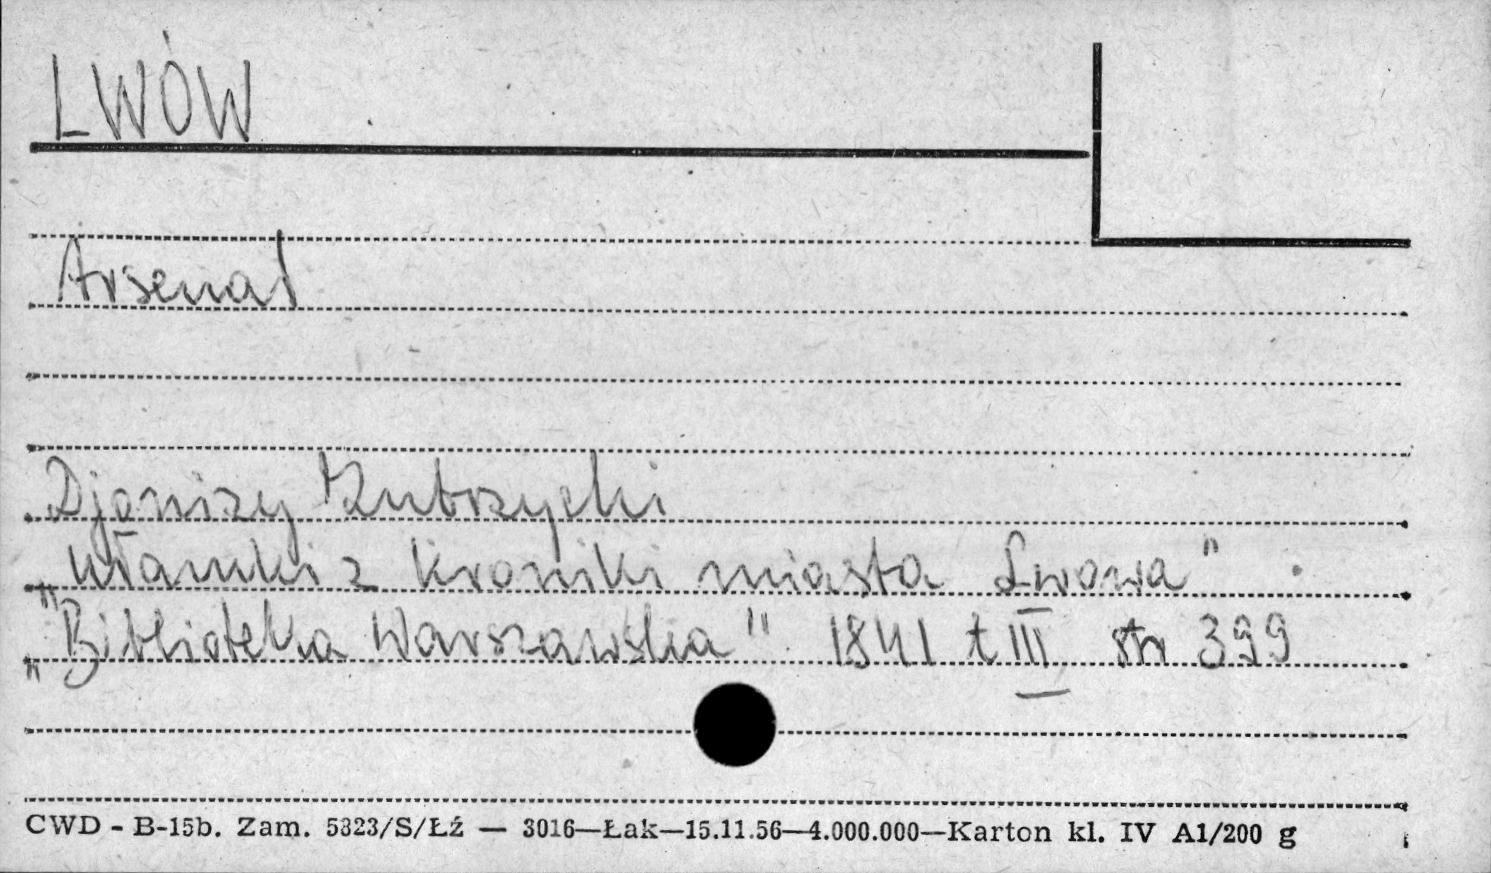 LWÓW
Arsenał
Djonizy Zubrzycki
„Ułamki z kroniki miasta Lwowa"
„Biblioteka Warszawska" 1841 t III str 399
CWD - B-15b. Zam. 5323/S/Łź — 3016—Łak—15.11.56—4.000.000—Karton kl. IV A1/200 g